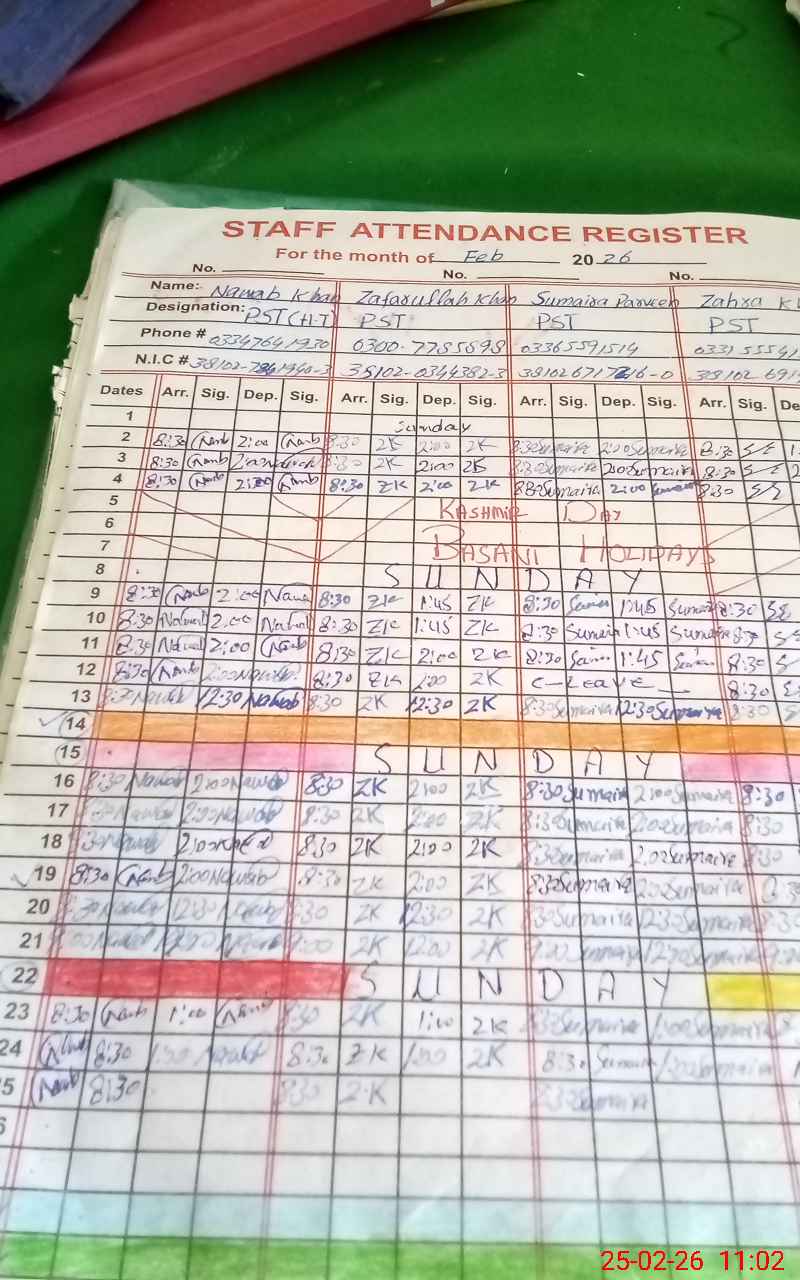 STAFF ATTENDANCE REGISTER
For the month of Feb 20 26
No. No. No.
Name: Nawab Khan Zafarullah Khan Sumaira Parveen Zahra
Designation: PST (H.T) PST PST PST
Phone # 03347641930 0300-7785898 03365591514 0331 5554
N.I.C # 38102-0344382-3 38102 691
Dates Arr. Sig. Dep. Sig. Arr. Sig. Dep. Sig. Arr. Sig. Dep. Sig. Arr. Sig. De
1 Sunday
2 8:30 2:00 8:30 ZK 2:00 ZK 8:30 Sumaira 2:00 Sumaira 8:30
3 8:30 8:30 ZK 2:00 ZK 8:30 Sumaira 2:00 Sumaira 8:30
4 8:30 2:00 8:30 ZK 2:00 ZK 8:30 Sumaira 2:00 8:30
5 KASHMIR DAY
6
7 BASANT HOLIDAYS
8 SUNDAY
9 8:30 2:00 Nawab 8:30 ZK 1:45 ZK 8:30 1:45 8:30
10 8:30 Nawab 2:00 Nawab 8:30 ZK 1:45 ZK 8:30 Sumaira 1:45 Sumaira 8:30
11 8:30 Nawab 2:00 8:30 ZK 2:00 ZK 8:30 1:45 8:30
12 8:30 2:00 Nawab 8:30 ZK 2:00 ZK C-Leave 8:30
13 8:30 Nawab 12:30 Nawab 8:30 ZK 12:30 ZK 8:30 Sumaira 12:30 Sumaira 8:30
14
15 SUNDAY
16 8:30 Nawab 2:00 Nawab 8:30 ZK 2:00 ZK 8:30 Sumaira 2:00 Sumaira 8:30
17 8:30 Nawab 2:00 Nawab 8:30 ZK 2:00 ZK 8:30 Sumaira 2:00 Sumaira 8:30
18 8:30 Nawab 2:00 8:30 ZK 2:00 ZK 8:30 Sumaira 2:00 Sumaira 8:30
19 8:30 2:00 Nawab 8:30 ZK 2:00 ZK 8:30 Sumaira 2:00 Sumaira
20 8:30 Nawab 12:30 Nawab 8:30 ZK 12:30 ZK 8:30 Sumaira 12:30 Sumaira 8:30
21 9:00 Nawab Nawab 9:00 ZK 12:00 ZK 9:00 Sumaira Sumaira 9:00
22 SUNDAY
23 8:30 1:00 8:30 ZK 1:00 ZK 8:30 Sumaira 1:00 Sumaira
24 8:30 Nawab 8:30 ZK ZK 8:30 Sumaira Sumaira
5 8:30 8:30 ZK 8:30 Sumaira
25-02-26 11:02